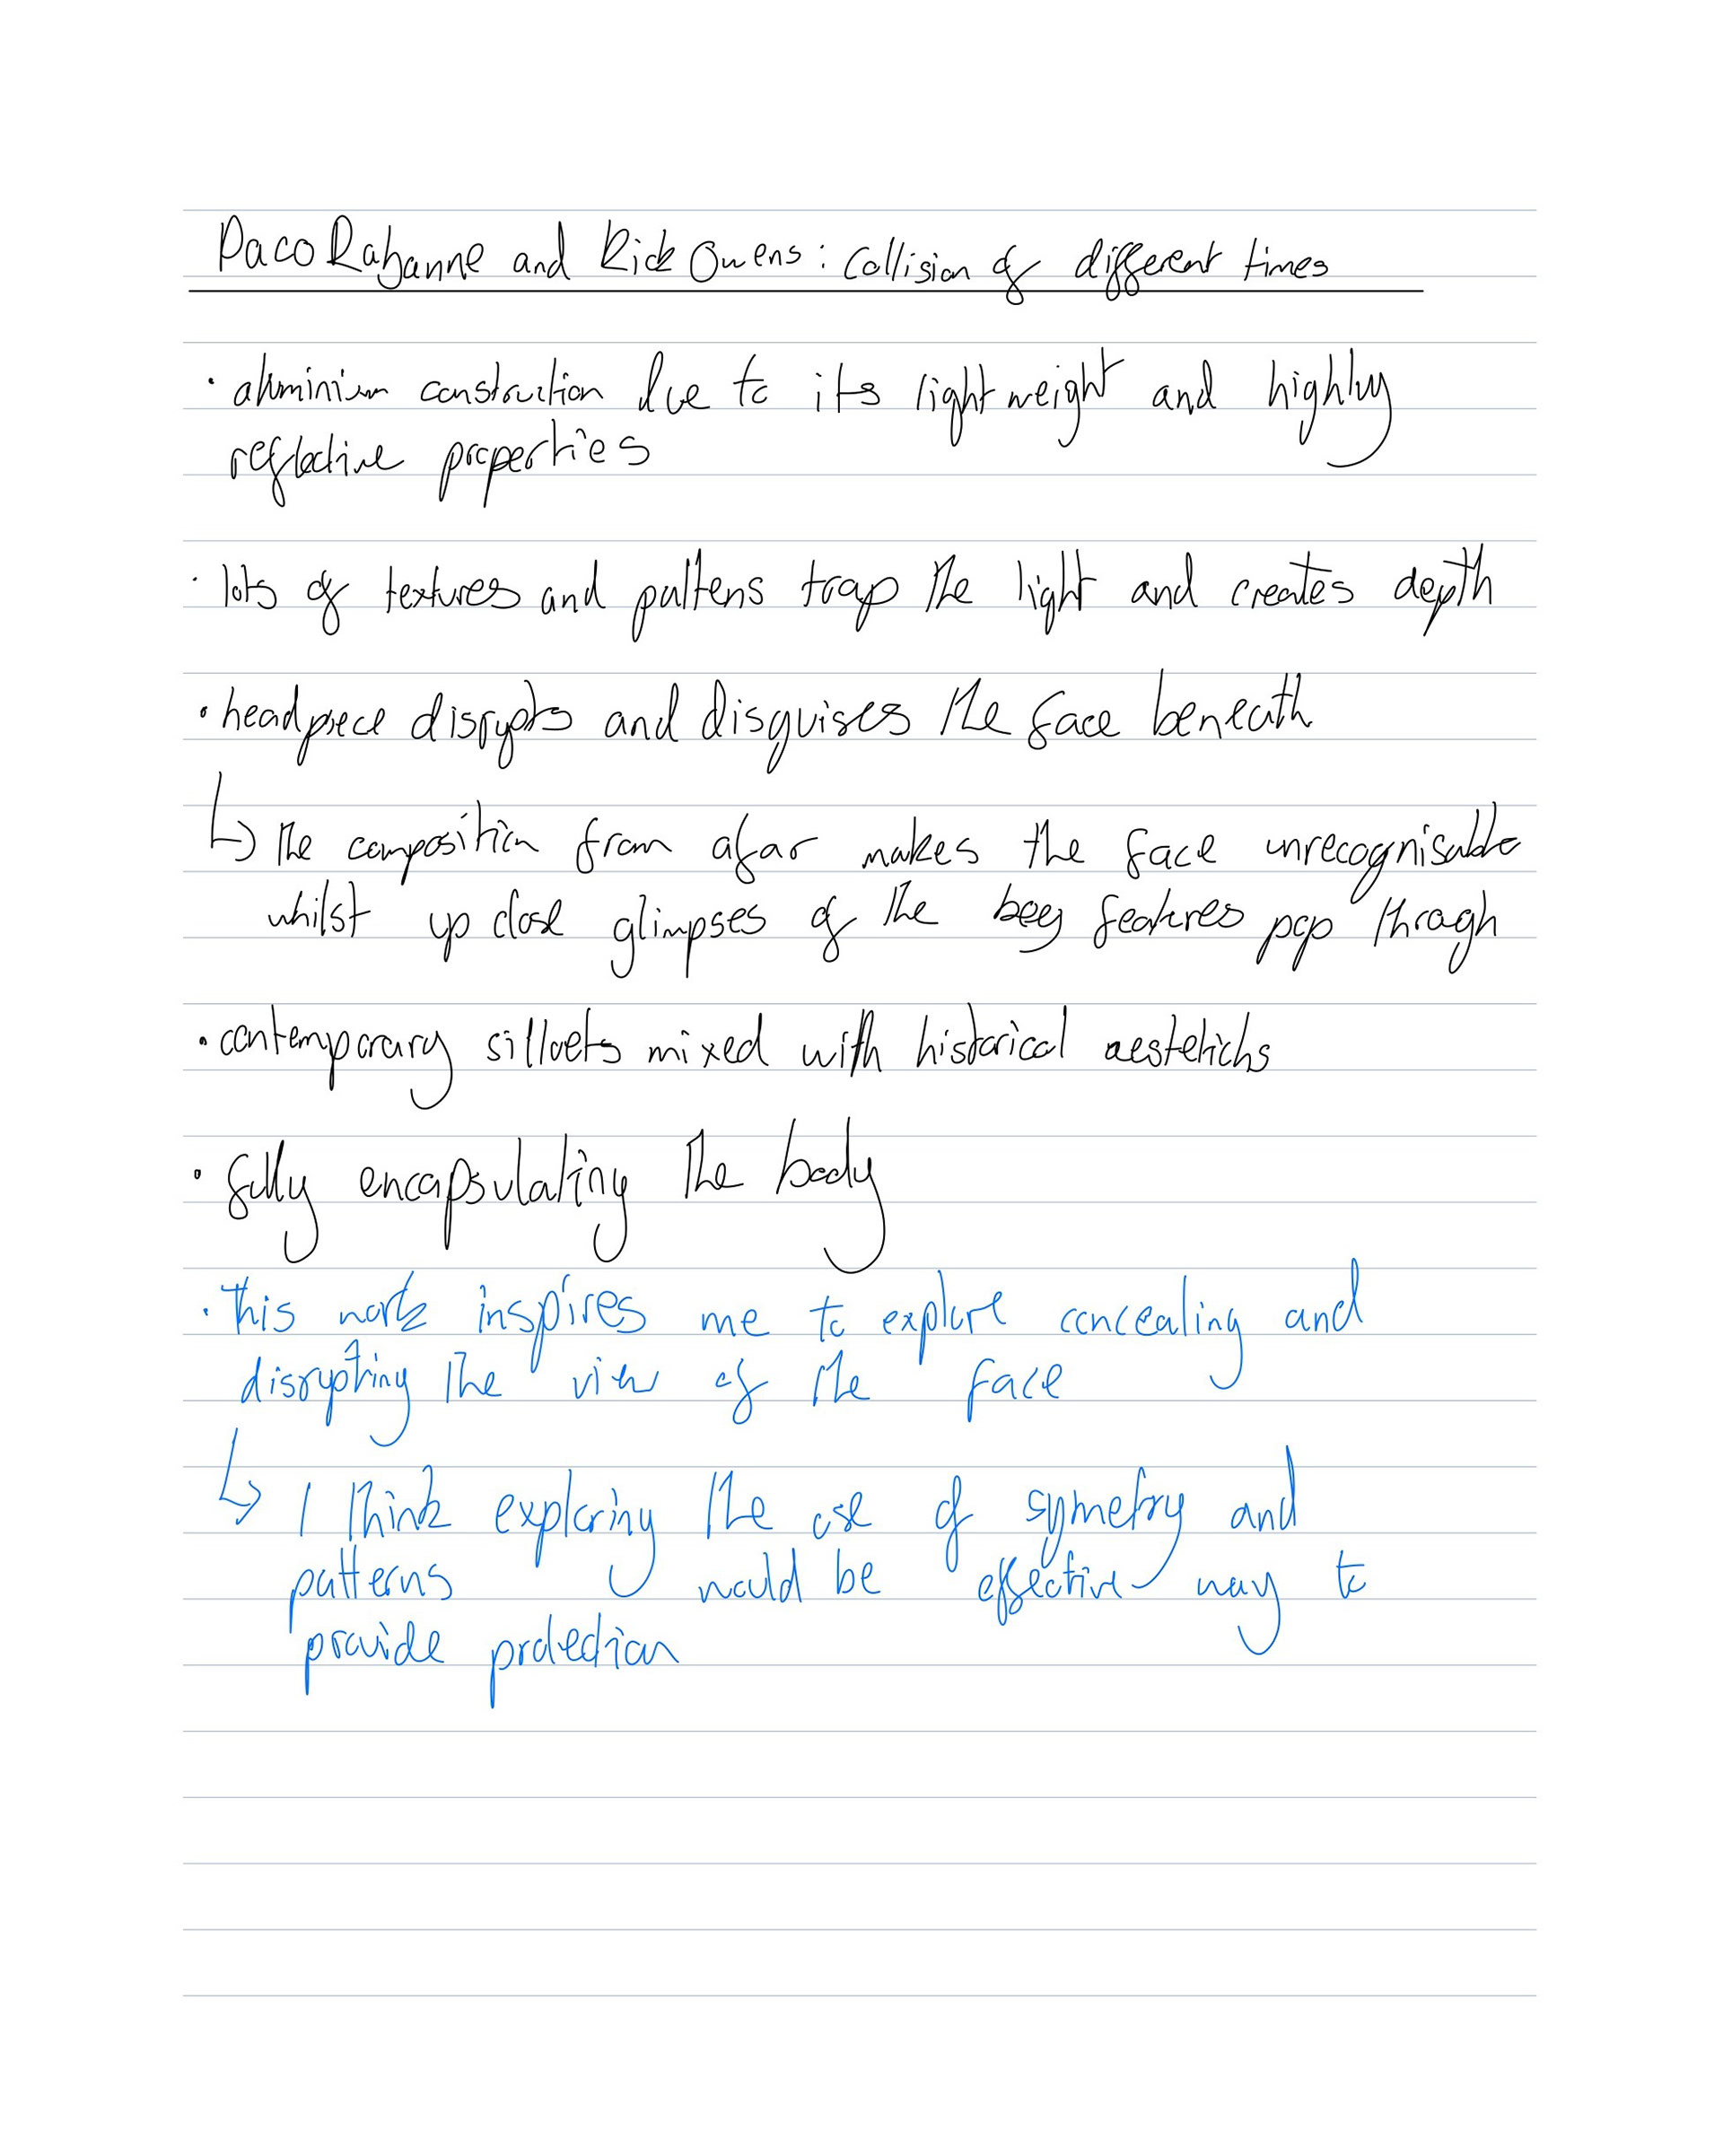 Paco Rabanne and Rick Owens: Collision of different times
· aluminium construction due to its lightweight and highly
reflective properties
· lots of textures and pattens trap the light and creates depth
· headpiece disrypts and disguises the face beneath
↳ the composition from afar makes the face unrecognisable
whilst up close glimpses of the features pop through
· contemporary silloets mixed with historical aestetichs
· fully encapsulating the body
· this work inspires me to explore concealing and
disrypting the view of the face
↳ I think exploring the use of symetry and
patterns would be effective way to
provide protection